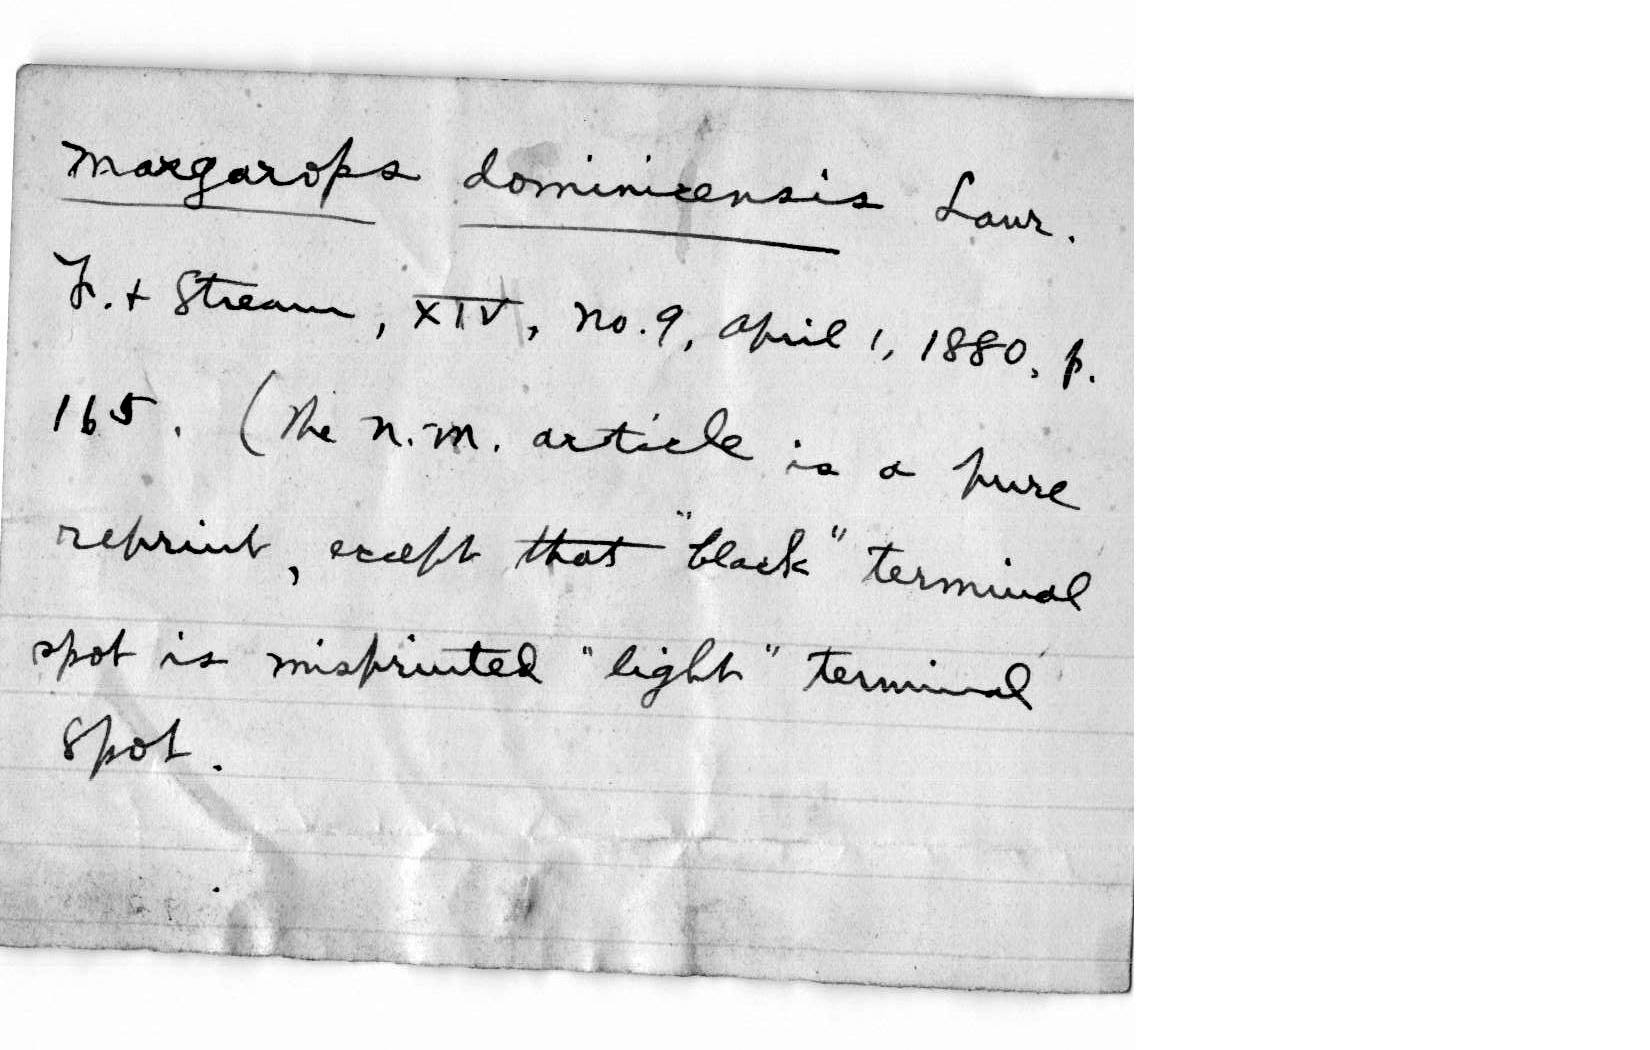 Margarops dominicensis Lawr.
F. + Stream, XIV, No. 9, April 1, 1880, p.
165. (The N.M. article is a pure
reprint, except that "black" terminal
spot is misprinted "light" terminal
spot.